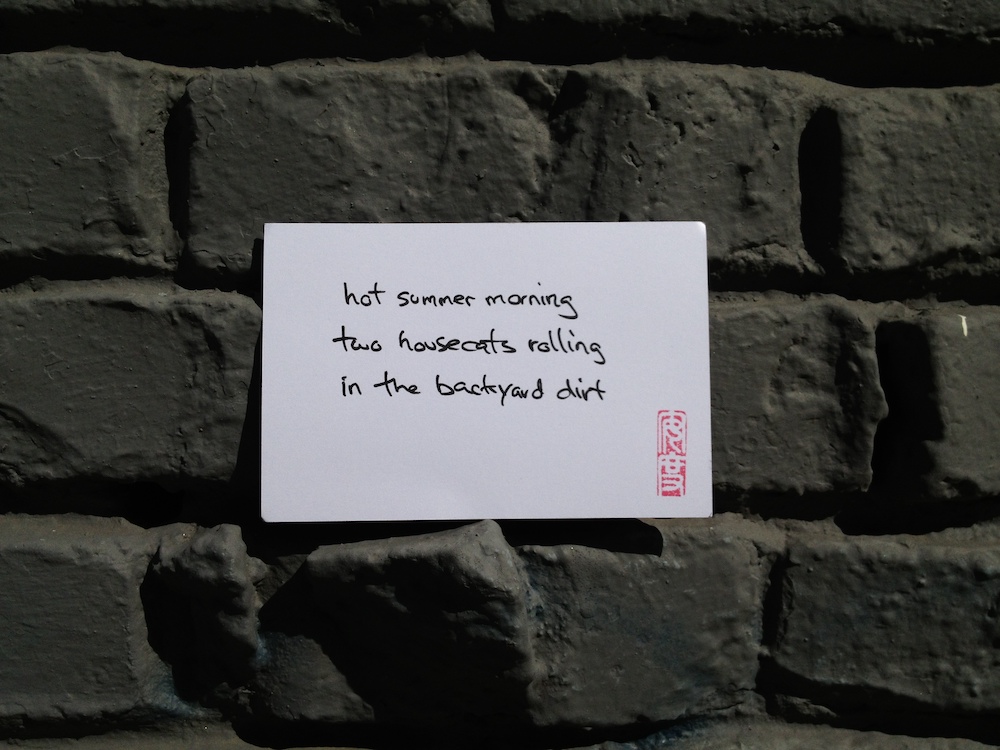 hot summer morning
two housecats rolling
in the backyard dirt